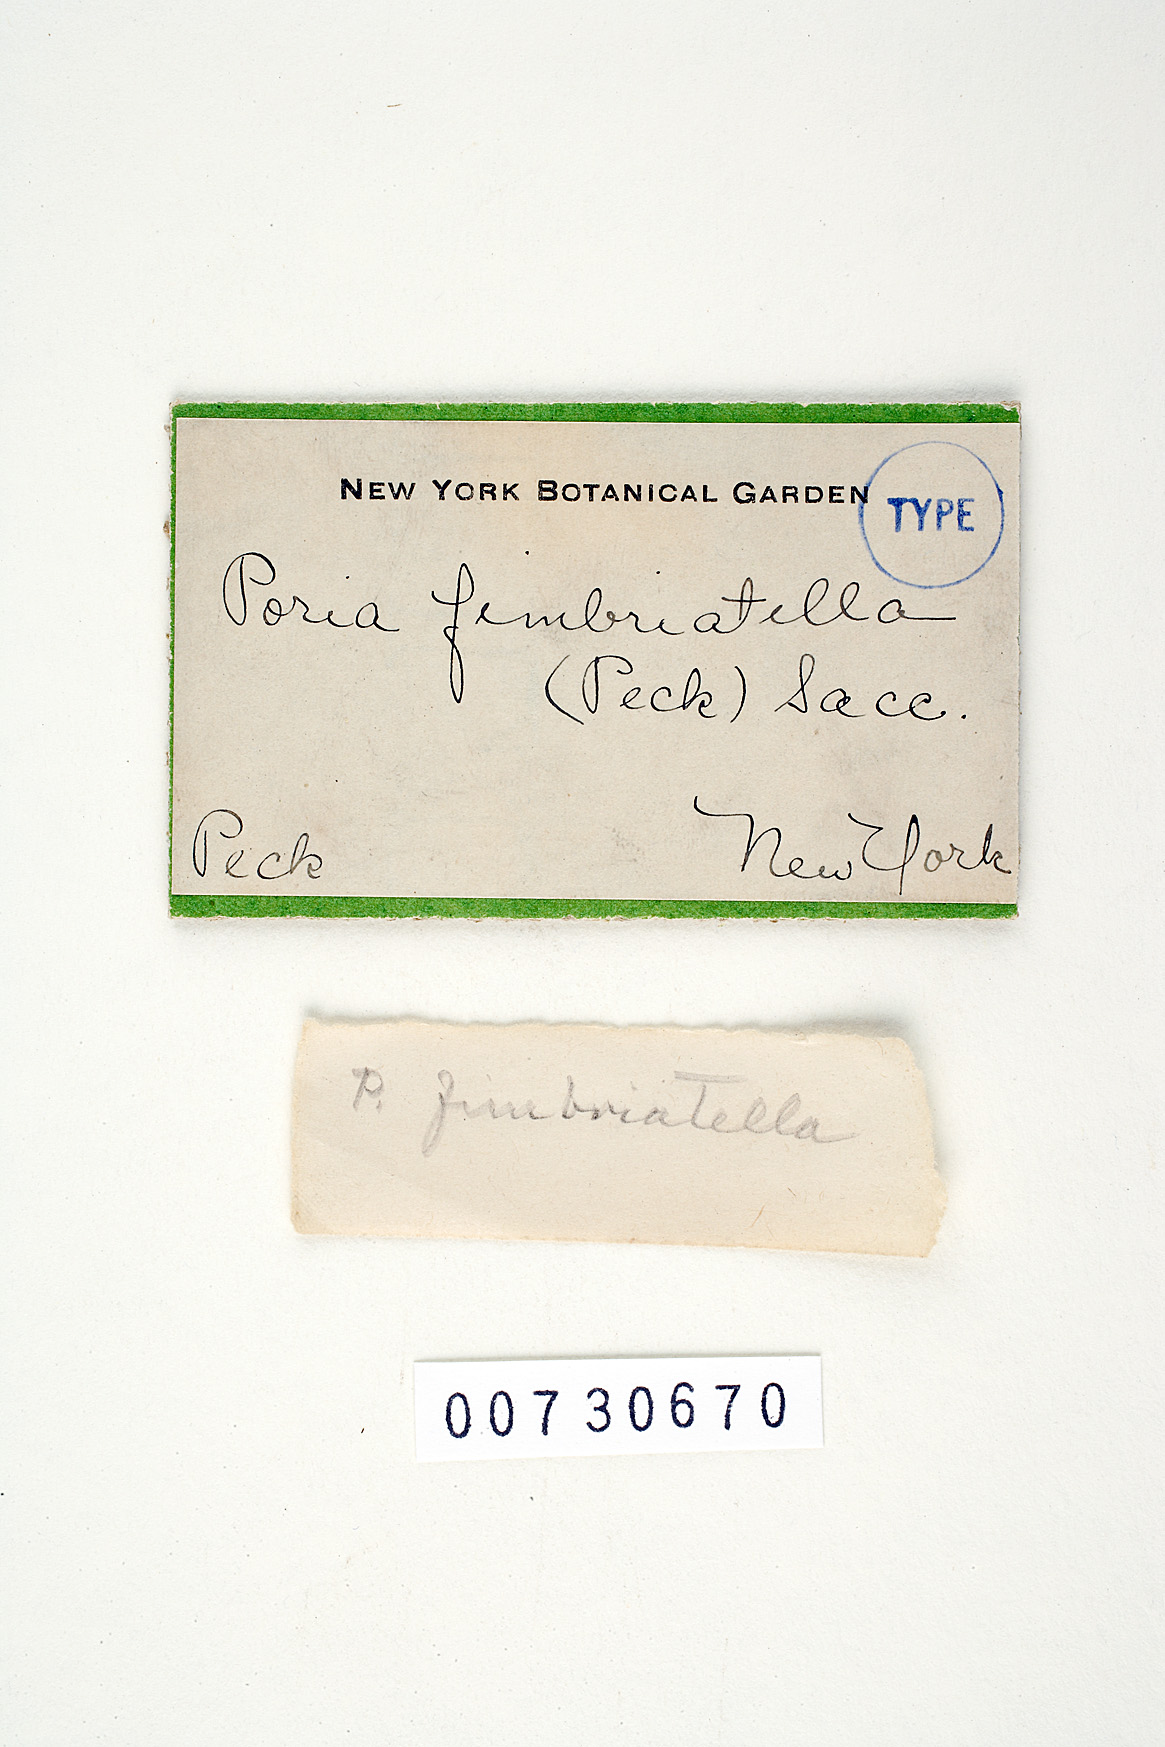 NEW YORK BOTANICAL GARDEN
TYPE
Poria fimbriatella
(Peck) Sacc.
Peck
New York
P. fimbriatella
00730670